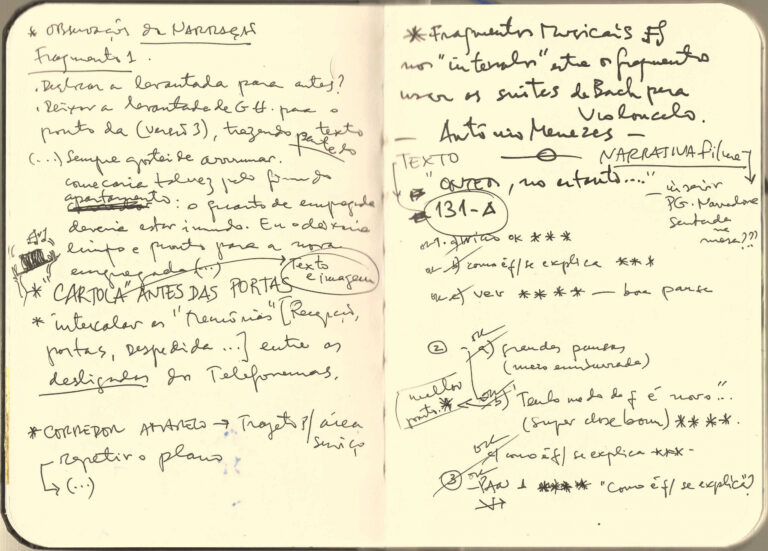 * OBSERVAÇÕES da NARRAÇÃO
Fragmento 1.
. Deslocar a levantada para antes?
. Deixar a levantada de G.H. para o
ponto da (versão 3), trazendo texto
(...) Sempre gostei de arrumar.
começaria talvez pelo fim do
apartamento: o quarto da empregada
deveria estar imundo. Eu o deixaria
limpo e pronto para a nova
empregada (...)
Texto
e imagem
* "CARTOLA" ANTES DAS PORTAS
* intercalar as [Recepção,
portas, Despedida ...] entre os
desligados dos Telefonemas.
* CORREDOR AMARELO → Trajeto p/ área
serviço
repetir o plano
↳ (...)
* Fragmentos Musicais
nos "intervalos" entre os fragmentos
usar as suítes de Bach para
Violoncelo.
— Antônio Meneses —
TEXTO
NARRATIVA filme
* "ONTEM, no entanto...."
* 131-A
— inserir
PG. Narradora
Sentada
na
mesa???
ok * * *
ok b) como é q/ se explica * * *
ok c) ver * * * * — boa pausa
ok
② a) grandes pausas
(meio emburrada)
melhor
ponto. *
ok b) Tenho medo do q é novo"..
(super close bom) * * * *.
ok
c) como é q/ se explica * * * -
ok
③ - PAN * * * * "Como é q/ se explica"?